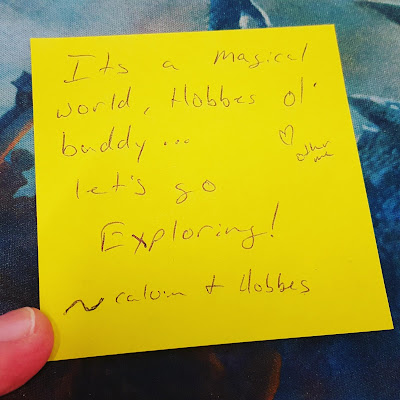 Its a magical
world, Hobbes ol'
buddy...
let's go
Exploring!
~ calvin + Hobbes
♡ other
me